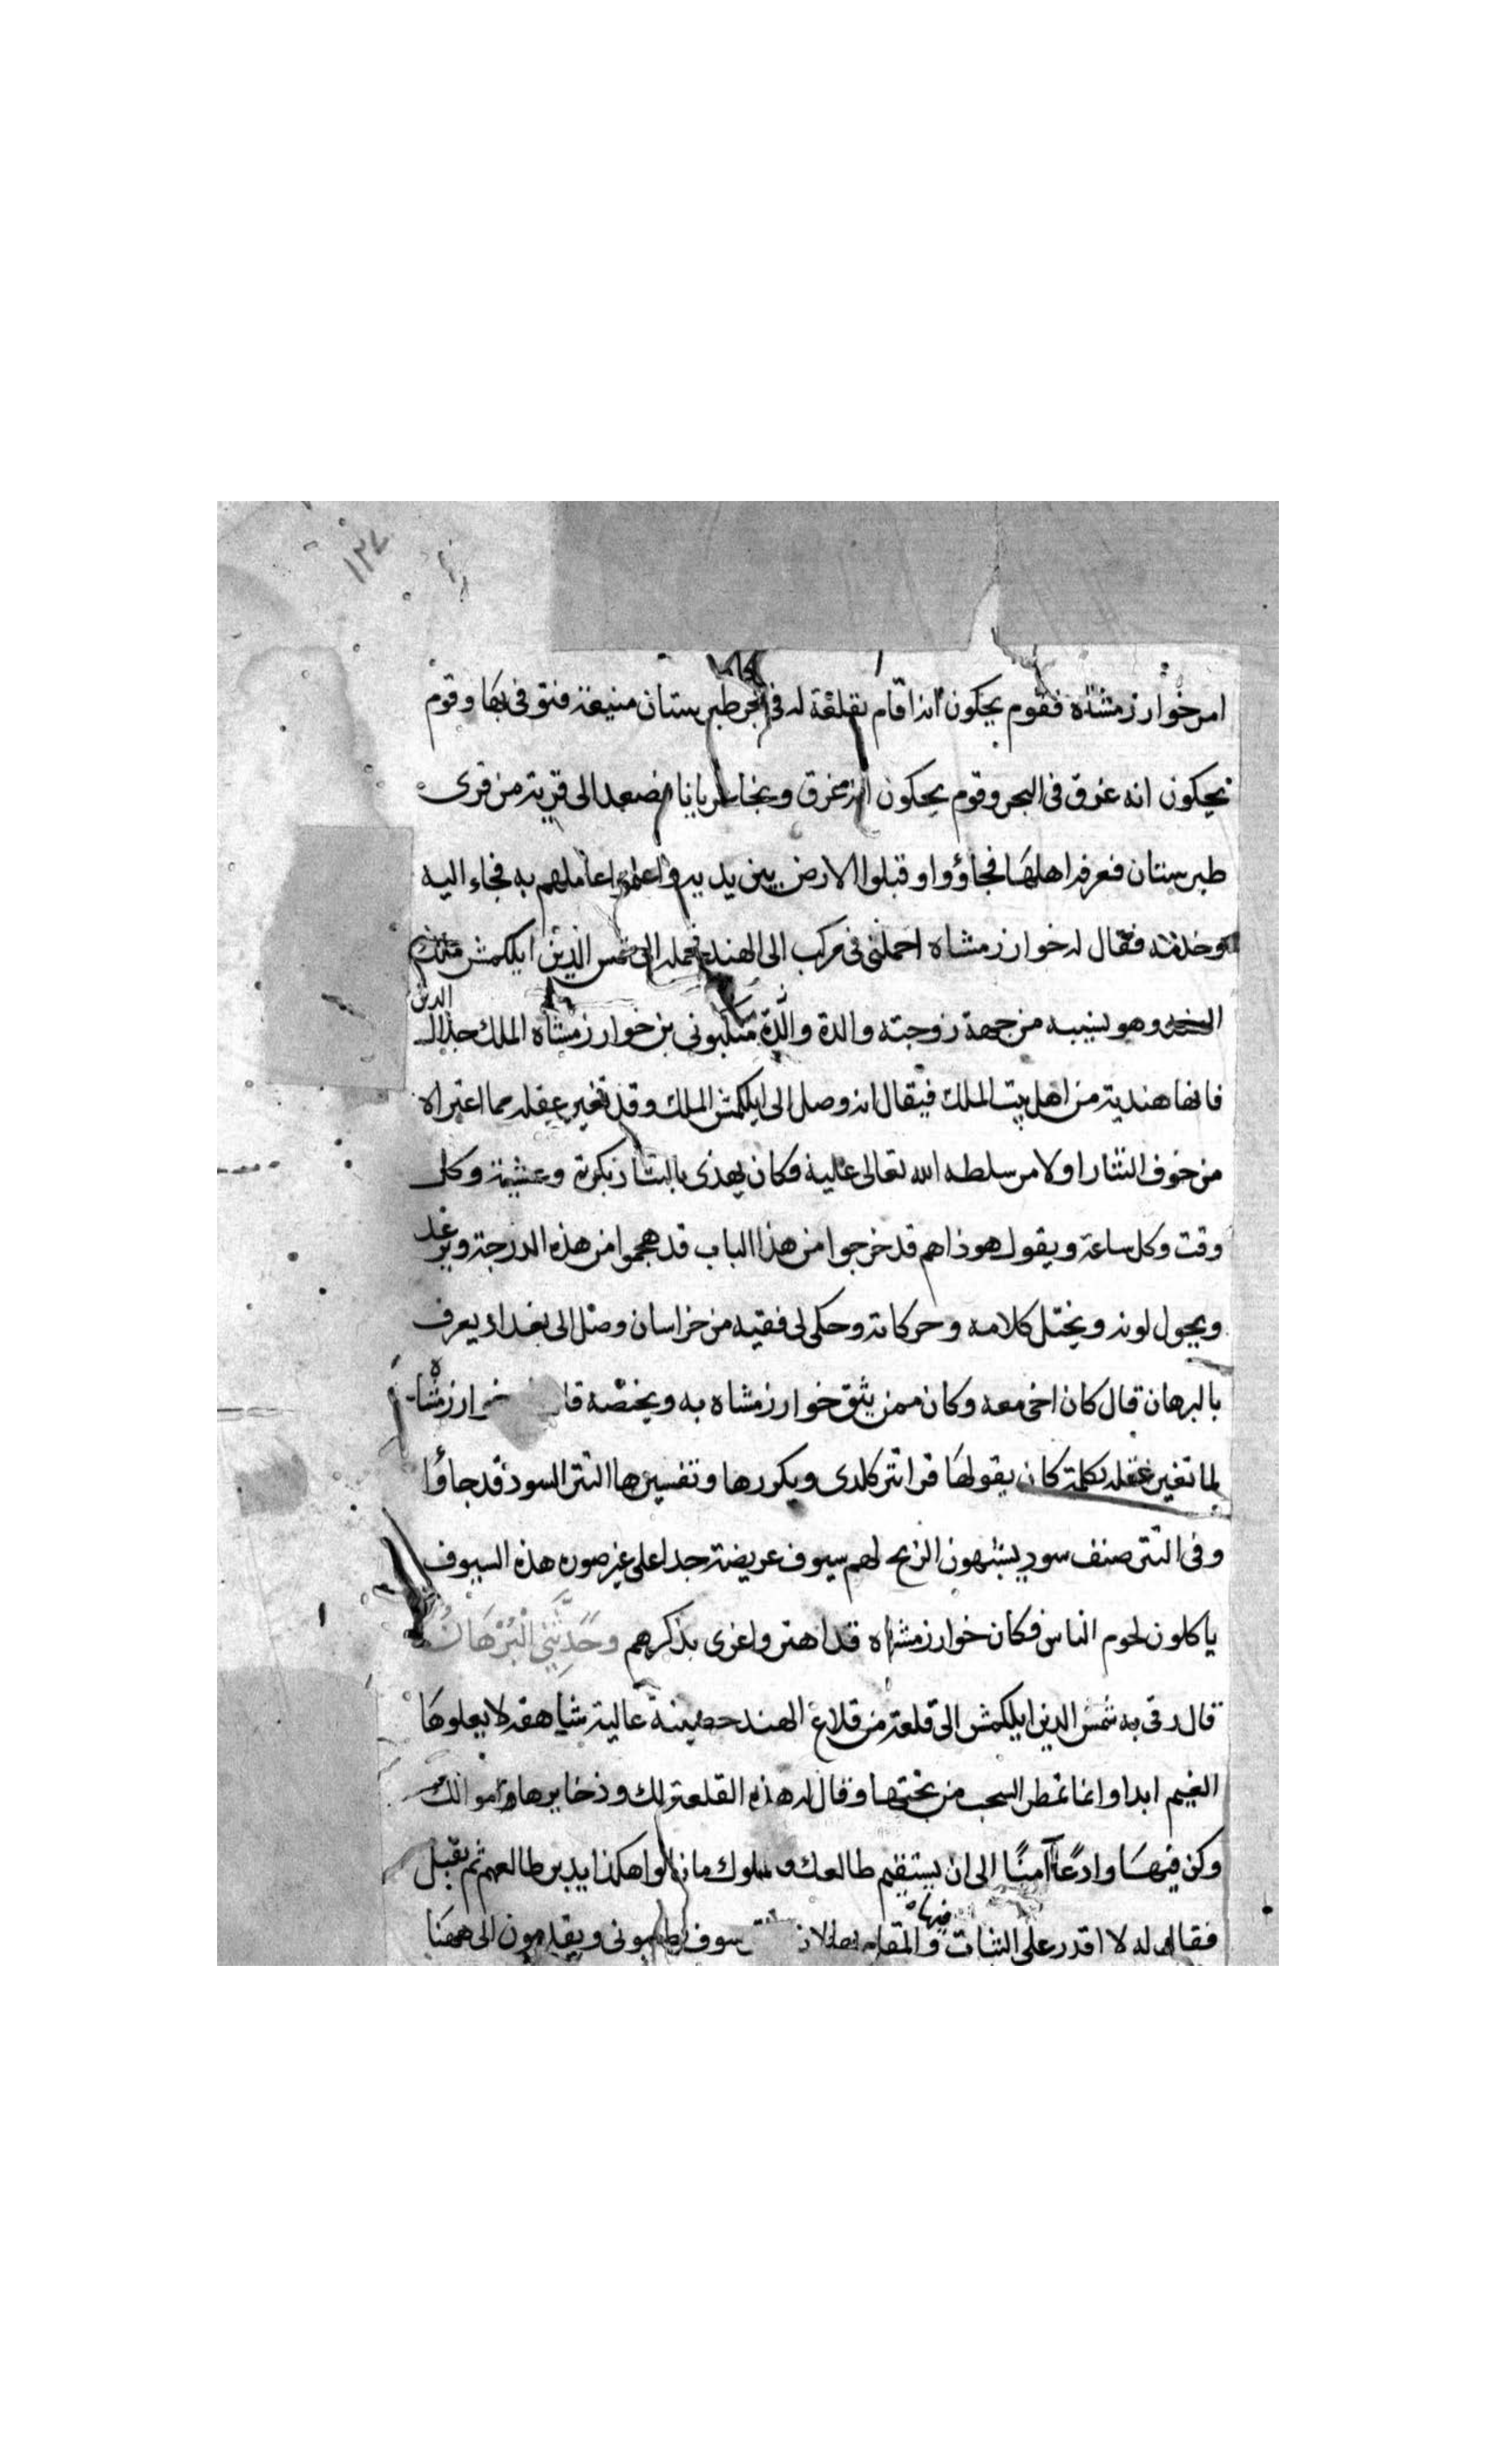 ١٣٧
امر خوارزمشاه فقوم يحكون انه اقام بقلعة له في بحر طبرستان منيعة فتوفى بها وقوم
يحكون انه غرق في البحر وقوم يحكون انه غرق ونجا عريانا فصعد الى قرية من قرى
طبرستان فعرفه اهلها فجاؤوا وقبلوا الارض بين يديه واعلموا عاملهم به فجاء اليه
وخدمه فقال له خوارزمشاه احملنى في مركب الى الهند فحمله الى شمس الدين ايلكمش ملك
الهند وهو نسيبه من جهة زوجته والدة والدة منكبونى بن خوارزمشاه الملك جلال الدين
فانها هندية من اهل بيت الملك فيقال انه وصل الى ايلكمش الملك وقد تغير عقله مما اعتراه
من خوف التتار او لامر سلطه الله تعالى عليه فكان يهذى بالتتار بكرة وعشية وكل
وقت وكل ساعة ويقول هوذا هم قد خرجوا من هذا الباب قد هجموا من هذه الدرجة ويرعد
ويحول لونه ويختل كلامه وحركاته وحكى لى فقيه من خراسان وصل الى بغداد يعرف
بالبرهان قال كان اخى معه وكان ممن يثق خوارزمشاه به ويخصه خوارزمشاه
لما تغير عقله بكلمة كان يقولها قرا تتر كلدى ويكررها وتفسيرها التتر السود قد جاؤا
وفى التتر صنف سود يشبهون الزنج لهم سيوف عريضة جدا على غير صورة هذه السيوف
ياكلون لحوم الناس فكان خوارزمشاه قد اهتر واغرى بذكرهم وَحَدَّثَنِى الْبُرْهَانُ
قال رقى به شمس الدين ايلكمش الى قلعة من قلاع الهند حصينة عالية شاهقة لا يعلوها
الغيم ابدا وانما تمطر السحب من تحتها وقال له هذه القلعة لك وذخايرها اموالك
وكن فيها وادعًا آمنًا الى ان يستقيم طالعك فالملوك ما زالوا هكذا يدبر طالعهم ثم يقبل
فقال له لا اقدر على الثبات فيها والمقام بها لان سوف يطلبونى ويقدمون الى ههنا